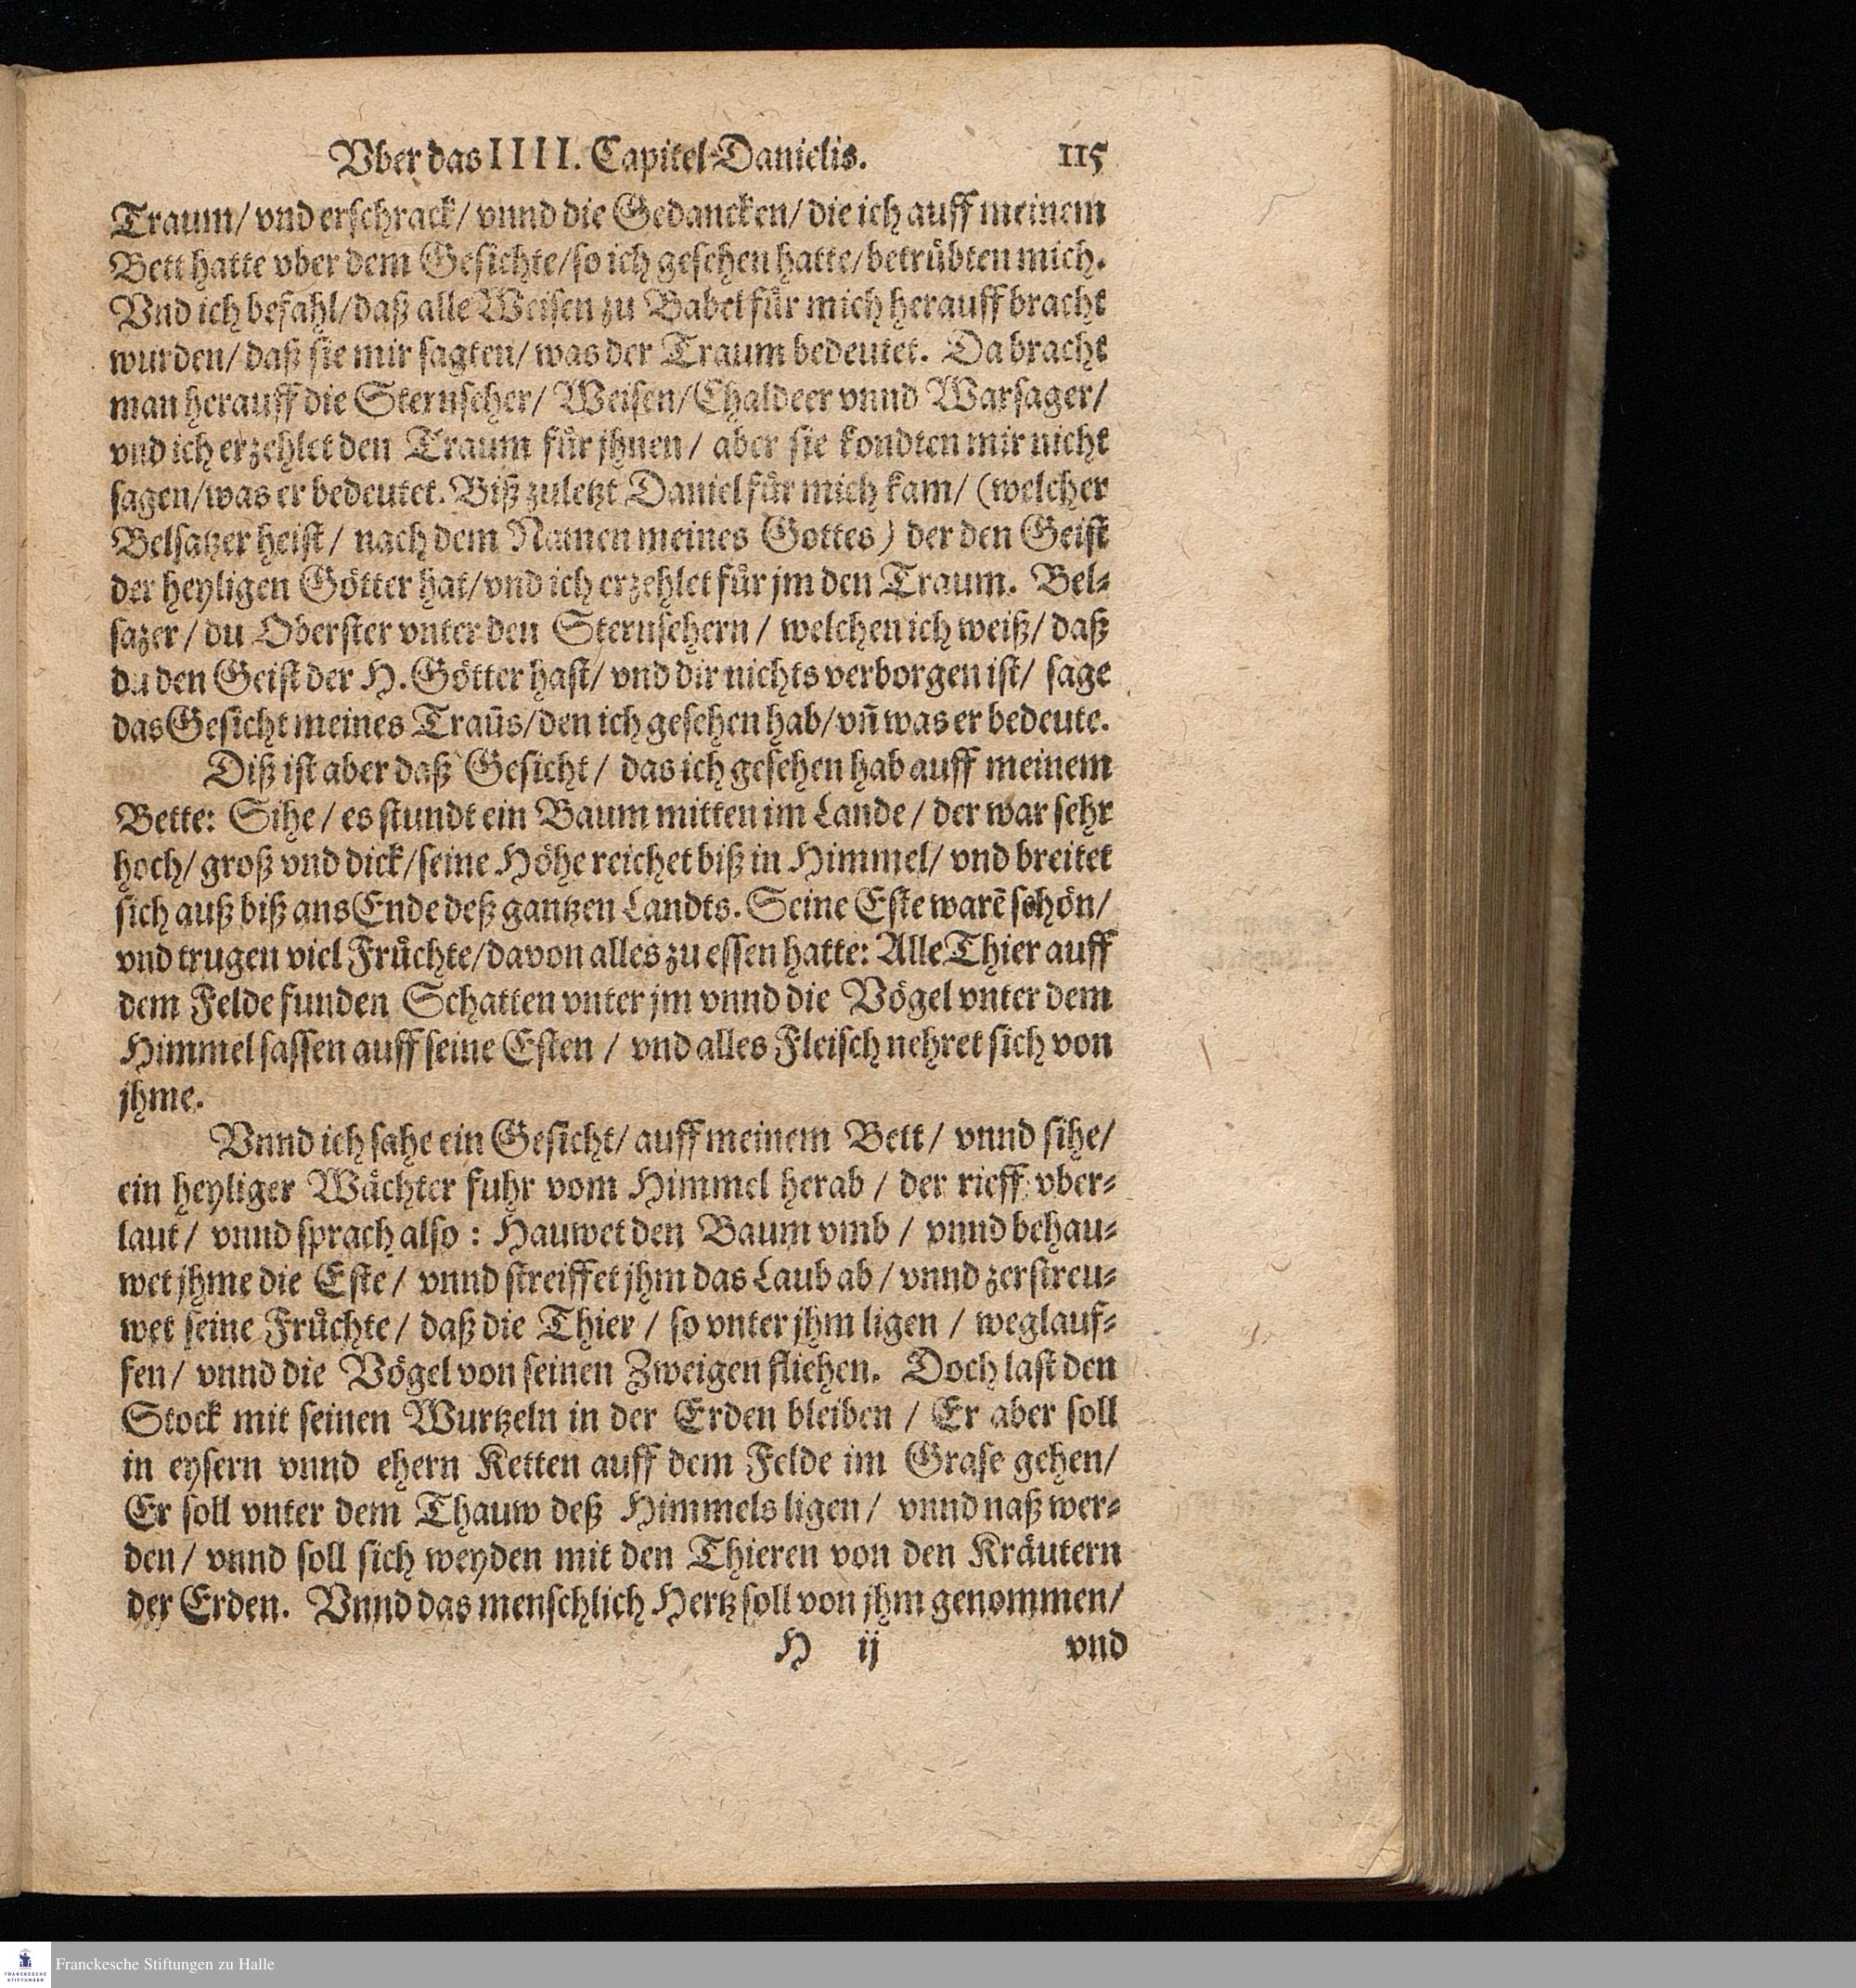 Vber das IIII. Capitel Danielis. 115
Traum/ vnd erschrack/ vnnd die Gedancken/ die ich auff meinem
Bett hatte vber dem Gesichte/ so ich gesehen hatte/ betrübten mich.
Vnd ich befahl/ daß alle Weisen zu Babel für mich herauff bracht
wurden/ daß sie mir sagten/ was der Traum bedeutet. Da bracht
man herauff die Sternseher/ Weisen/ Chaldeer vnnd Warsager/
vnd ich erzehlet den Traum für jhnen/ aber sie kondten mir nicht
sagen/ was er bedeutet. Biß zuletzt Daniel für mich kam/ (welcher
Belsatzer heist/ nach dem Namen meines Gottes) der den Geist
der heyligen Götter hat/ vnd ich erzehlet für jm den Traum. Bel-
sazer/ du Oberster vnter den Sternsehern/ welchen ich weiß/ daß
du den Geist der H. Götter hast/ vnd dir nichts verborgen ist/ sage
das Gesicht meines Traūs/ den ich gesehen hab/ vñ was er bedeute.
Diß ist aber daß Gesicht/ das ich gesehen hab auff meinem
Bette: Sihe/ es stundt ein Baum mitten im Lande/ der war sehr
hoch/ groß vnd dick/ seine Höhe reichet biß in Himmel/ vnd breitet
sich auß biß ans Ende deß gantzen Landts. Seine Este warē schön/
vnd trugen viel Früchte/ davon alles zu essen hatte: Alle Thier auff
dem Felde funden Schatten vnter jm vnnd die Vögel vnter dem
Himmel sassen auff seine Esten/ vnd alles Fleisch nehret sich von
jhme.
Vnnd ich sahe ein Gesicht/ auff meinem Bett/ vnnd sihe/
ein heyliger Wächter fuhr vom Himmel herab/ der rieff vber-
laut/ vnnd sprach also: Hauwet den Baum vmb/ vnnd behau-
wet jhme die Este/ vnnd streiffet jhm das Laub ab/ vnnd zerstreu-
wet seine Früchte/ daß die Thier/ so vnter jhm ligen/ weglauf-
fen/ vnnd die Vögel von seinen Zweigen fliehen. Doch last den
Stock mit seinen Wurtzeln in der Erden bleiben/ Er aber soll
in eysern vnnd ehern Ketten auff dem Felde im Grase gehen/
Er soll vnter dem Thauw deß Himmels ligen/ vnnd naß wer-
den/ vnnd soll sich weyden mit den Thieren von den Kräutern
der Erden. Vnnd das menschlich Hertz soll von jhm genommen/
H ij vnd
FRANCKESCHE STIFTUNGEN
Franckesche Stiftungen zu Halle